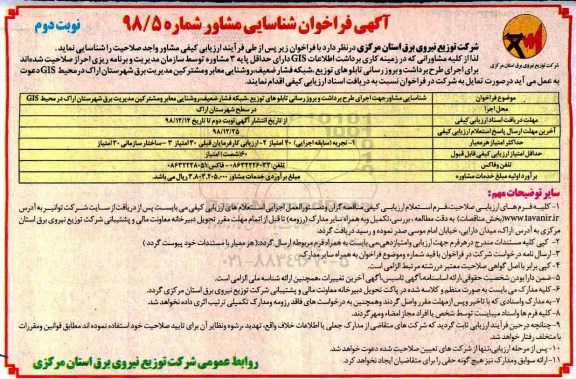 آگهی فراخوان شناسایی مشاور شماره ۹۸/۵
نوبت دوم
شرکت توزیع نیروی برق استان مرکزی
شرکت توزیع نیروی برق استان مرکزی در نظر دارد با فراخوان زیر پس از طی فرآیند ارزیابی کیفی مشاور واجد صلاحیت را شناسایی نماید.
لذا از کلیه مشاورانی که در زمینه کاری برداشت اطلاعات GIS دارای حداقل پایه ۳ مشاوره توسط سازمان مدیریت و برنامه ریزی احراز صلاحیت شده‌اند
برای اجرای طرح برداشت و بروز رسانی تابلو های توزیع، شبکه فشار ضعیف، روشنایی معابر و مشترکین مدیریت برق شهرستان اراک در محیط GIS دعوت
به عمل می آید در صورت تمایل به شرکت در فراخوان نسبت به دریافت اسناد ارزیابی کیفی اقدام نمایند.
موضوع فراخوان
شناسایی مشاور جهت اجرای طرح برداشت و بروز رسانی تابلو های توزیع، شبکه فشار ضعیف، روشنایی معابر و مشترکین مدیریت برق شهرستان اراک در محیط GIS
محل اجرا
در سطح شهرستان اراک
مهلت دریافت اسناد ارزیابی کیفی
از تاریخ انتشار آگهی نوبت دوم تا تاریخ ۹۸/۱۲/۱۴
آخرین مهلت ارسال پاسخ استعلام ارزیابی کیفی
۹۸/۱۲/۲۵
حداکثر امتیاز هر معیار
۱- تجربه (سابقه اجرایی) ۴۰ امتیاز ۲- ارزیابی کارفرمایان قبلی ۳۰ امتیاز ۳- ساختار سازمانی ۳۰ امتیاز
حداقل امتیاز ارزیابی کیفی قابل قبول
۶۰ (شصت) امتیاز
تلفن و فاکس
برآورد اولیه مبلغ خدمات مشاوره
مبلغ برآوردی خدمات مشاور ۳,۸۰۳,۲۰۵,۰۰۰ ریال می باشد
سایر توضیحات مهم:
۱- کلیه فرم های ارزیابی صلاحیت، فرم استعلام ارزیابی کیفی مناقصه گران و دستورالعمل اجرایی استعلام های ارزیابی کیفی می بایست پس از دریافت از سایت شرکت توانیر به آدرس
www.tavanir.ir (بخش مناقصات) به دقت مطالعه، بررسی، تکمیل و به همراه سایر مدارک (رزومه) تا قبل از اتمام مهلت مقرر تحویل دبیرخانه معاونت مالی و پشتیبانی شرکت توزیع نیروی برق استان
مرکزی به آدرس اراک، میدان دارایی، خیابان امام موسی صدر نموده و رسید دریافت گردد.
۲- کپی کلیه مستندات مندرج در هر فرم جهت ارزیابی و امتیازدهی می بایست به همراه فرم مربوطه ارسال گردد. (هر معیار با مستندات خود پیوست گردد)
۳- ارسال نامه درخواست شرکت در فراخوان با قید شماره و موضوع فراخوان به همراه سایر مدارک.
۴- کپی برابر با اصل گواهی صلاحیت معتبر در رشته مرتبط الزامی است.
۵- ضمن دارا بودن شخصیت حقوقی، ارائه اساسنامه، آگهی تاسیس، آگهی آخرین تغییرات، همچنین ارائه شناسه ملی الزامی است.
۶- کلیه مدارک می بایست به صورت منظم و کلاسه شده در پاکت تحویل دبیرخانه معاونت مالی و پشتیبانی شرکت توزیع نیروی برق استان مرکزی گردد.
۷- به مدارک و اسنادی که با تاخیر و پس از مهلت مقرر واصل گردند و همچنین به درخواست های فاقد رزومه و مدارک تکمیلی ترتیب اثری داده نخواهد شد.
۸- کلیه فرم ها و اسناد میبایست توسط شخص یا افراد مجاز امضاء و مهر گردند.
۹- چنانچه در حین فرآیند ارزیابی ثابت گردید که شرکت های متقاضی از مدارک جعلی یا اطلاعات خلاف واقع، تهدید، رشوه و نظایر آن برای تایید صلاحیت خود استفاده نموده اند مطابق قوانین و مقررات
با متخلف رفتار خواهد شد.
۱۰- پس از مرحله ارزیابی، تنها از شرکت های تعیین صلاحیت شده دعوت خواهد شد.
۱۱- ارائه سوابق و مدارک نیز هیچ گونه حقی را برای متقاضیان ایجاد نخواهد کرد.
روابط عمومی شرکت توزیع نیروی برق استان مرکزی